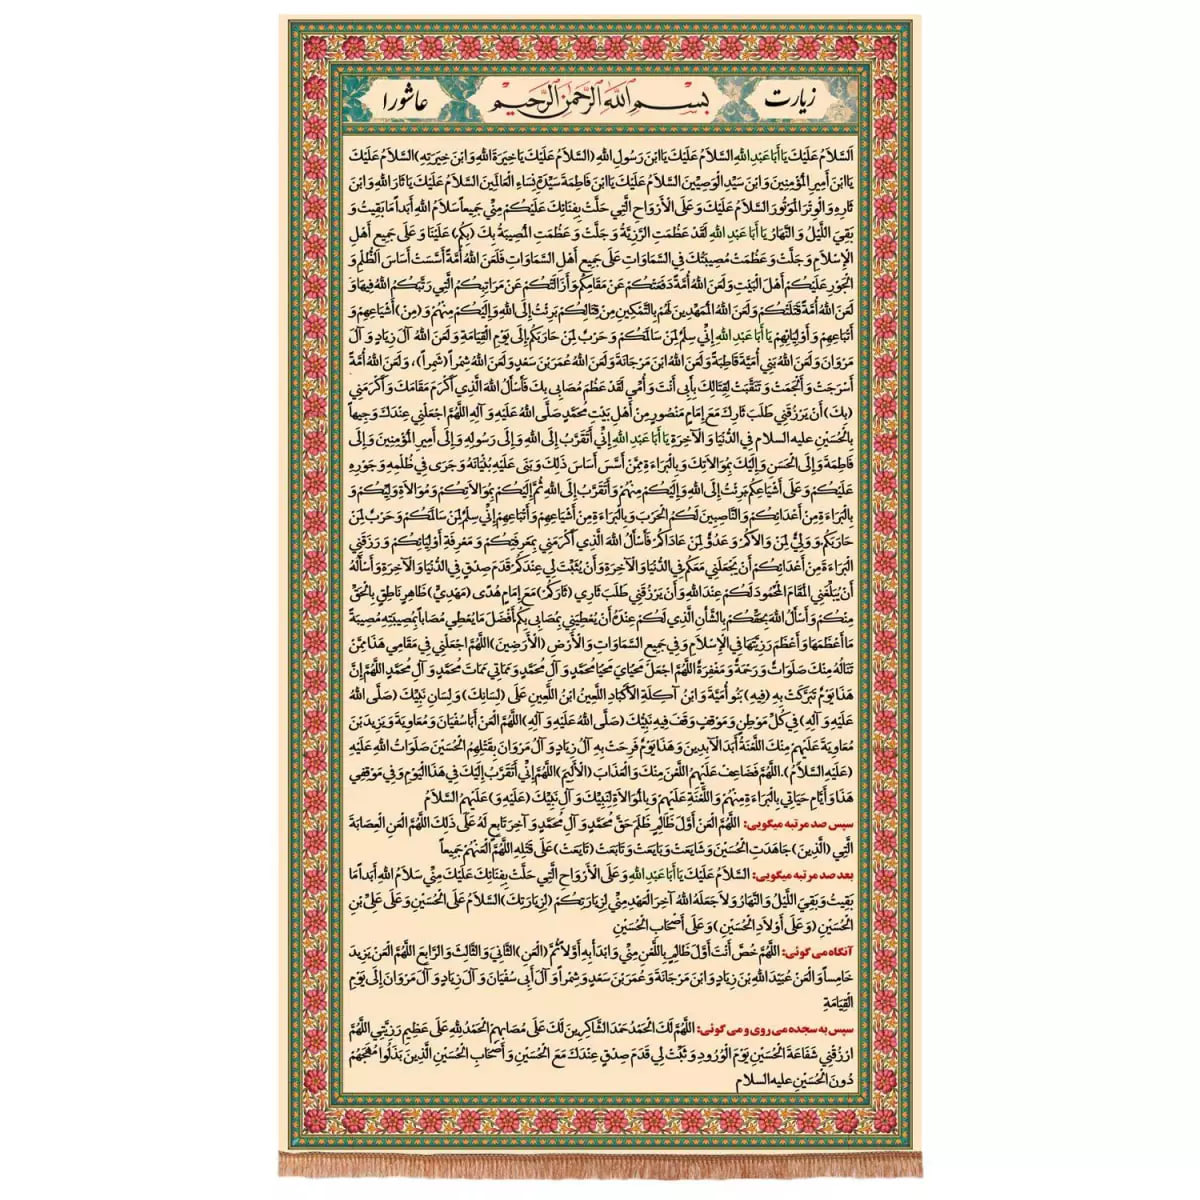 زیارت
بسم الله الرحمن الرحیم
عاشورا
اَلسَّلامُ عَلَيْكَ يَا أَبَا عَبْدِ اللهِ السَّلامُ عَلَيْكَ يَا ابْنَ رَسُولِ اللهِ (السَّلامُ عَلَيْكَ يَا خِيَرَةَ اللهِ وَ ابْنَ خِيَرَتِهِ) السَّلامُ عَلَيْكَ
يَا ابْنَ أَمِيرِ الْمُؤْمِنِينَ وَ ابْنَ سَيِّدِ الْوَصِيِّينَ السَّلامُ عَلَيْكَ يَا ابْنَ فَاطِمَةَ سَيِّدَةِ نِسَاءِ الْعَالَمِينَ السَّلامُ عَلَيْكَ يَا ثَارَ اللهِ وَ ابْنَ
ثَارِهِ وَ الْوِتْرَ الْمَوْتُورَ السَّلامُ عَلَيْكَ وَ عَلَى الْأَرْوَاحِ الَّتِي حَلَّتْ بِفِنَائِكَ عَلَيْكُمْ مِنِّي جَمِيعاً سَلامُ اللهِ أَبَداً مَا بَقِيتُ وَ
بَقِيَ اللَّيْلُ وَ النَّهَارُ يَا أَبَا عَبْدِ اللهِ لَقَدْ عَظُمَتِ الرَّزِيَّةُ وَ جَلَّتْ وَ عَظُمَتِ الْمُصِيبَةُ بِكَ (بِكُمْ) عَلَيْنَا وَ عَلَى جَمِيعِ أَهْلِ
الْإِسْلامِ وَ جَلَّتْ وَ عَظُمَتْ مُصِيبَتُكَ فِي السَّمَاوَاتِ عَلَى جَمِيعِ أَهْلِ السَّمَاوَاتِ فَلَعَنَ اللهُ أُمَّةً أَسَّسَتْ أَسَاسَ الظُّلْمِ وَ
الْجَوْرِ عَلَيْكُمْ أَهْلَ الْبَيْتِ وَ لَعَنَ اللهُ أُمَّةً دَفَعَتْكُمْ عَنْ مَقَامِكُمْ وَ أَزَالَتْكُمْ عَنْ مَرَاتِبِكُمُ الَّتِي رَتَّبَكُمُ اللهُ فِيهَا وَ
لَعَنَ اللهُ أُمَّةً قَتَلَتْكُمْ وَ لَعَنَ اللهُ الْمُمَهِّدِينَ لَهُمْ بِالتَّمْكِينِ مِنْ قِتَالِكُمْ بَرِئْتُ إِلَى اللهِ وَ إِلَيْكُمْ مِنْهُمْ وَ (مِنْ) أَشْيَاعِهِمْ وَ
أَتْبَاعِهِمْ وَ أَوْلِيَائِهِمْ يَا أَبَا عَبْدِ اللهِ إِنِّي سِلْمٌ لِمَنْ سَالَمَكُمْ وَ حَرْبٌ لِمَنْ حَارَبَكُمْ إِلَى يَوْمِ الْقِيَامَةِ وَ لَعَنَ اللهُ آلَ زِيَادٍ وَ آلَ
مَرْوَانَ وَ لَعَنَ اللهُ بَنِي أُمَيَّةَ قَاطِبَةً وَ لَعَنَ اللهُ ابْنَ مَرْجَانَةَ وَ لَعَنَ اللهُ عُمَرَ بْنَ سَعْدٍ وَ لَعَنَ اللهُ شِمْراً (شَمِراً) ، وَ لَعَنَ اللهُ أُمَّةً
أَسْرَجَتْ وَ أَلْجَمَتْ وَ تَنَقَّبَتْ لِقِتَالِكَ بِأَبِي أَنْتَ وَ أُمِّي لَقَدْ عَظُمَ مُصَابِي بِكَ فَأَسْأَلُ اللهَ الَّذِي أَكْرَمَ مَقَامَكَ وَ أَكْرَمَنِي
(بِكَ) أَنْ يَرْزُقَنِي طَلَبَ ثَارِكَ مَعَ إِمَامٍ مَنْصُورٍ مِنْ أَهْلِ بَيْتِ مُحَمَّدٍ صَلَّى اللهُ عَلَيْهِ وَ آلِهِ اللَّهُمَّ اجْعَلْنِي عِنْدَكَ وَجِيهاً
بِالْحُسَيْنِ علیه السلام فِي الدُّنْيَا وَ الْآخِرَةِ يَا أَبَا عَبْدِ اللهِ إِنِّي أَتَقَرَّبُ إِلَى اللهِ وَ إِلَى رَسُولِهِ وَ إِلَى أَمِيرِ الْمُؤْمِنِينَ وَ إِلَى
فَاطِمَةَ وَ إِلَى الْحَسَنِ وَ إِلَيْكَ بِمُوَالاتِكَ وَ بِالْبَرَاءَةِ مِمَّنْ أَسَّسَ أَسَاسَ ذَلِكَ وَ بَنَى عَلَيْهِ بُنْيَانَهُ وَ جَرَى فِي ظُلْمِهِ وَ جَوْرِهِ
عَلَيْكُمْ وَ عَلَى أَشْيَاعِكُمْ بَرِئْتُ إِلَى اللهِ وَ إِلَيْكُمْ مِنْهُمْ وَ أَتَقَرَّبُ إِلَى اللهِ ثُمَّ إِلَيْكُمْ بِمُوَالاتِكُمْ وَ مُوَالاةِ وَلِيِّكُمْ وَ
بِالْبَرَاءَةِ مِنْ أَعْدَائِكُمْ وَ النَّاصِبِينَ لَكُمُ الْحَرْبَ وَ بِالْبَرَاءَةِ مِنْ أَشْيَاعِهِمْ وَ أَتْبَاعِهِمْ إِنِّي سِلْمٌ لِمَنْ سَالَمَكُمْ وَ حَرْبٌ لِمَنْ
حَارَبَكُمْ وَ وَلِيٌّ لِمَنْ وَالاكُمْ وَ عَدُوٌّ لِمَنْ عَادَاكُمْ فَأَسْأَلُ اللهَ الَّذِي أَكْرَمَنِي بِمَعْرِفَتِكُمْ وَ مَعْرِفَةِ أَوْلِيَائِكُمْ وَ رَزَقَنِي
الْبَرَاءَةَ مِنْ أَعْدَائِكُمْ أَنْ يَجْعَلَنِي مَعَكُمْ فِي الدُّنْيَا وَ الْآخِرَةِ وَ أَنْ يُثَبِّتَ لِي عِنْدَكُمْ قَدَمَ صِدْقٍ فِي الدُّنْيَا وَ الْآخِرَةِ وَ أَسْأَلُهُ
أَنْ يُبَلِّغَنِي الْمَقَامَ الْمَحْمُودَ لَكُمْ عِنْدَ اللهِ وَ أَنْ يَرْزُقَنِي طَلَبَ ثَارِي (ثَارِكُمْ) مَعَ إِمَامٍ هُدًى (مَهْدِيٍّ) ظَاهِرٍ نَاطِقٍ بِالْحَقِّ
مِنْكُمْ وَ أَسْأَلُ اللهَ بِحَقِّكُمْ وَ بِالشَّأْنِ الَّذِي لَكُمْ عِنْدَهُ أَنْ يُعْطِيَنِي بِمُصَابِي بِكُمْ أَفْضَلَ مَا يُعْطِي مُصَاباً بِمُصِيبَتِهِ مُصِيبَةً
مَا أَعْظَمَهَا وَ أَعْظَمَ رَزِيَّتَهَا فِي الْإِسْلامِ وَ فِي جَمِيعِ السَّمَاوَاتِ وَ الْأَرْضِ (الْأَرَضِينَ) اللَّهُمَّ اجْعَلْنِي فِي مَقَامِي هَذَا مِمَّنْ
تَنَالُهُ مِنْكَ صَلَوَاتٌ وَ رَحْمَةٌ وَ مَغْفِرَةٌ اللَّهُمَّ اجْعَلْ مَحْيَايَ مَحْيَا مُحَمَّدٍ وَ آلِ مُحَمَّدٍ وَ مَمَاتِي مَمَاتَ مُحَمَّدٍ وَ آلِ مُحَمَّدٍ اللَّهُمَّ إِنَّ
هَذَا يَوْمٌ تَبَرَّكَتْ بِهِ (فِيهِ) بَنُو أُمَيَّةَ وَ ابْنُ آكِلَةِ الْأَكْبَادِ اللَّعِينُ ابْنُ اللَّعِينِ عَلَى (لِسَانِكَ) وَ لِسَانِ نَبِيِّكَ (صَلَّى اللهُ
عَلَيْهِ وَ آلِهِ) فِي كُلِّ مَوْطِنٍ وَ مَوْقِفٍ وَقَفَ فِيهِ نَبِيُّكَ (صَلَّى اللهُ عَلَيْهِ وَ آلِهِ) اللَّهُمَّ الْعَنْ أَبَا سُفْيَانَ وَ مُعَاوِيَةَ وَ يَزِيدَ بْنَ
مُعَاوِيَةَ عَلَيْهِمْ مِنْكَ اللَّعْنَةُ أَبَدَ الْآبِدِينَ وَ هَذَا يَوْمٌ فَرِحَتْ بِهِ آلُ زِيَادٍ وَ آلُ مَرْوَانَ بِقَتْلِهِمُ الْحُسَيْنَ صَلَوَاتُ اللهِ عَلَيْهِ
(عَلَيْهِ السَّلامُ) . اللَّهُمَّ فَضَاعِفْ عَلَيْهِمُ اللَّعْنَ مِنْكَ وَ الْعَذَابَ (الْأَلِيمَ) اللَّهُمَّ إِنِّي أَتَقَرَّبُ إِلَيْكَ فِي هَذَا الْيَوْمِ وَ فِي مَوْقِفِي
هَذَا وَ أَيَّامِ حَيَاتِي بِالْبَرَاءَةِ مِنْهُمْ وَ اللَّعْنَةِ عَلَيْهِمْ وَ بِالْمُوَالاةِ لِنَبِيِّكَ وَ آلِ نَبِيِّكَ (عَلَيْهِ وَ) عَلَيْهِمُ السَّلامُ
سپس صد مرتبه میگویی: اللَّهُمَّ الْعَنْ أَوَّلَ ظَالِمٍ ظَلَمَ حَقَّ مُحَمَّدٍ وَ آلِ مُحَمَّدٍ وَ آخِرَ تَابِعٍ لَهُ عَلَى ذَلِكَ اللَّهُمَّ الْعَنِ الْعِصَابَةَ
الَّتِي (الَّذِينَ) جَاهَدَتِ الْحُسَيْنَ وَ شَايَعَتْ وَ بَايَعَتْ وَ تَابَعَتْ (تَايَعَتْ) عَلَى قَتْلِهِ اللَّهُمَّ الْعَنْهُمْ جَمِيعاً
بعد صد مرتبه میگویی: السَّلامُ عَلَيْكَ يَا أَبَا عَبْدِ اللهِ وَ عَلَى الْأَرْوَاحِ الَّتِي حَلَّتْ بِفِنَائِكَ عَلَيْكَ مِنِّي سَلامُ اللهِ أَبَداً مَا
بَقِيتُ وَ بَقِيَ اللَّيْلُ وَ النَّهَارُ وَ لا جَعَلَهُ اللهُ آخِرَ الْعَهْدِ مِنِّي لِزِيَارَتِكُمْ (لِزِيَارَتِكَ) السَّلامُ عَلَى الْحُسَيْنِ وَ عَلَى عَلِيِّ بْنِ
الْحُسَيْنِ (وَ عَلَى أَوْلادِ الْحُسَيْنِ) وَ عَلَى أَصْحَابِ الْحُسَيْنِ
آنگاه می گوئی: اللَّهُمَّ خُصَّ أَنْتَ أَوَّلَ ظَالِمٍ بِاللَّعْنِ مِنِّي وَ ابْدَأْ بِهِ أَوَّلاً ثُمَّ (الْعَنِ) الثَّانِيَ وَ الثَّالِثَ وَ الرَّابِعَ اللَّهُمَّ الْعَنْ يَزِيدَ
خَامِساً وَ الْعَنْ عُبَيْدَ اللهِ بْنَ زِيَادٍ وَ ابْنَ مَرْجَانَةَ وَ عُمَرَ بْنَ سَعْدٍ وَ شِمْراً وَ آلَ أَبِي سُفْيَانَ وَ آلَ زِيَادٍ وَ آلَ مَرْوَانَ إِلَى يَوْمِ
الْقِيَامَةِ
سپس به سجده می روی و می گوئی: اللَّهُمَّ لَكَ الْحَمْدُ حَمْدَ الشَّاكِرِينَ لَكَ عَلَى مُصَابِهِمْ الْحَمْدُ لِلّهِ عَلَى عَظِيمِ رَزِيَّتِي اللَّهُمَّ
ارْزُقْنِي شَفَاعَةَ الْحُسَيْنِ يَوْمَ الْوُرُودِ وَ ثَبِّتْ لِي قَدَمَ صِدْقٍ عِنْدَكَ مَعَ الْحُسَيْنِ وَ أَصْحَابِ الْحُسَيْنِ الَّذِينَ بَذَلُوا مُهَجَهُمْ
دُونَ الْحُسَيْنِ علیه السلام